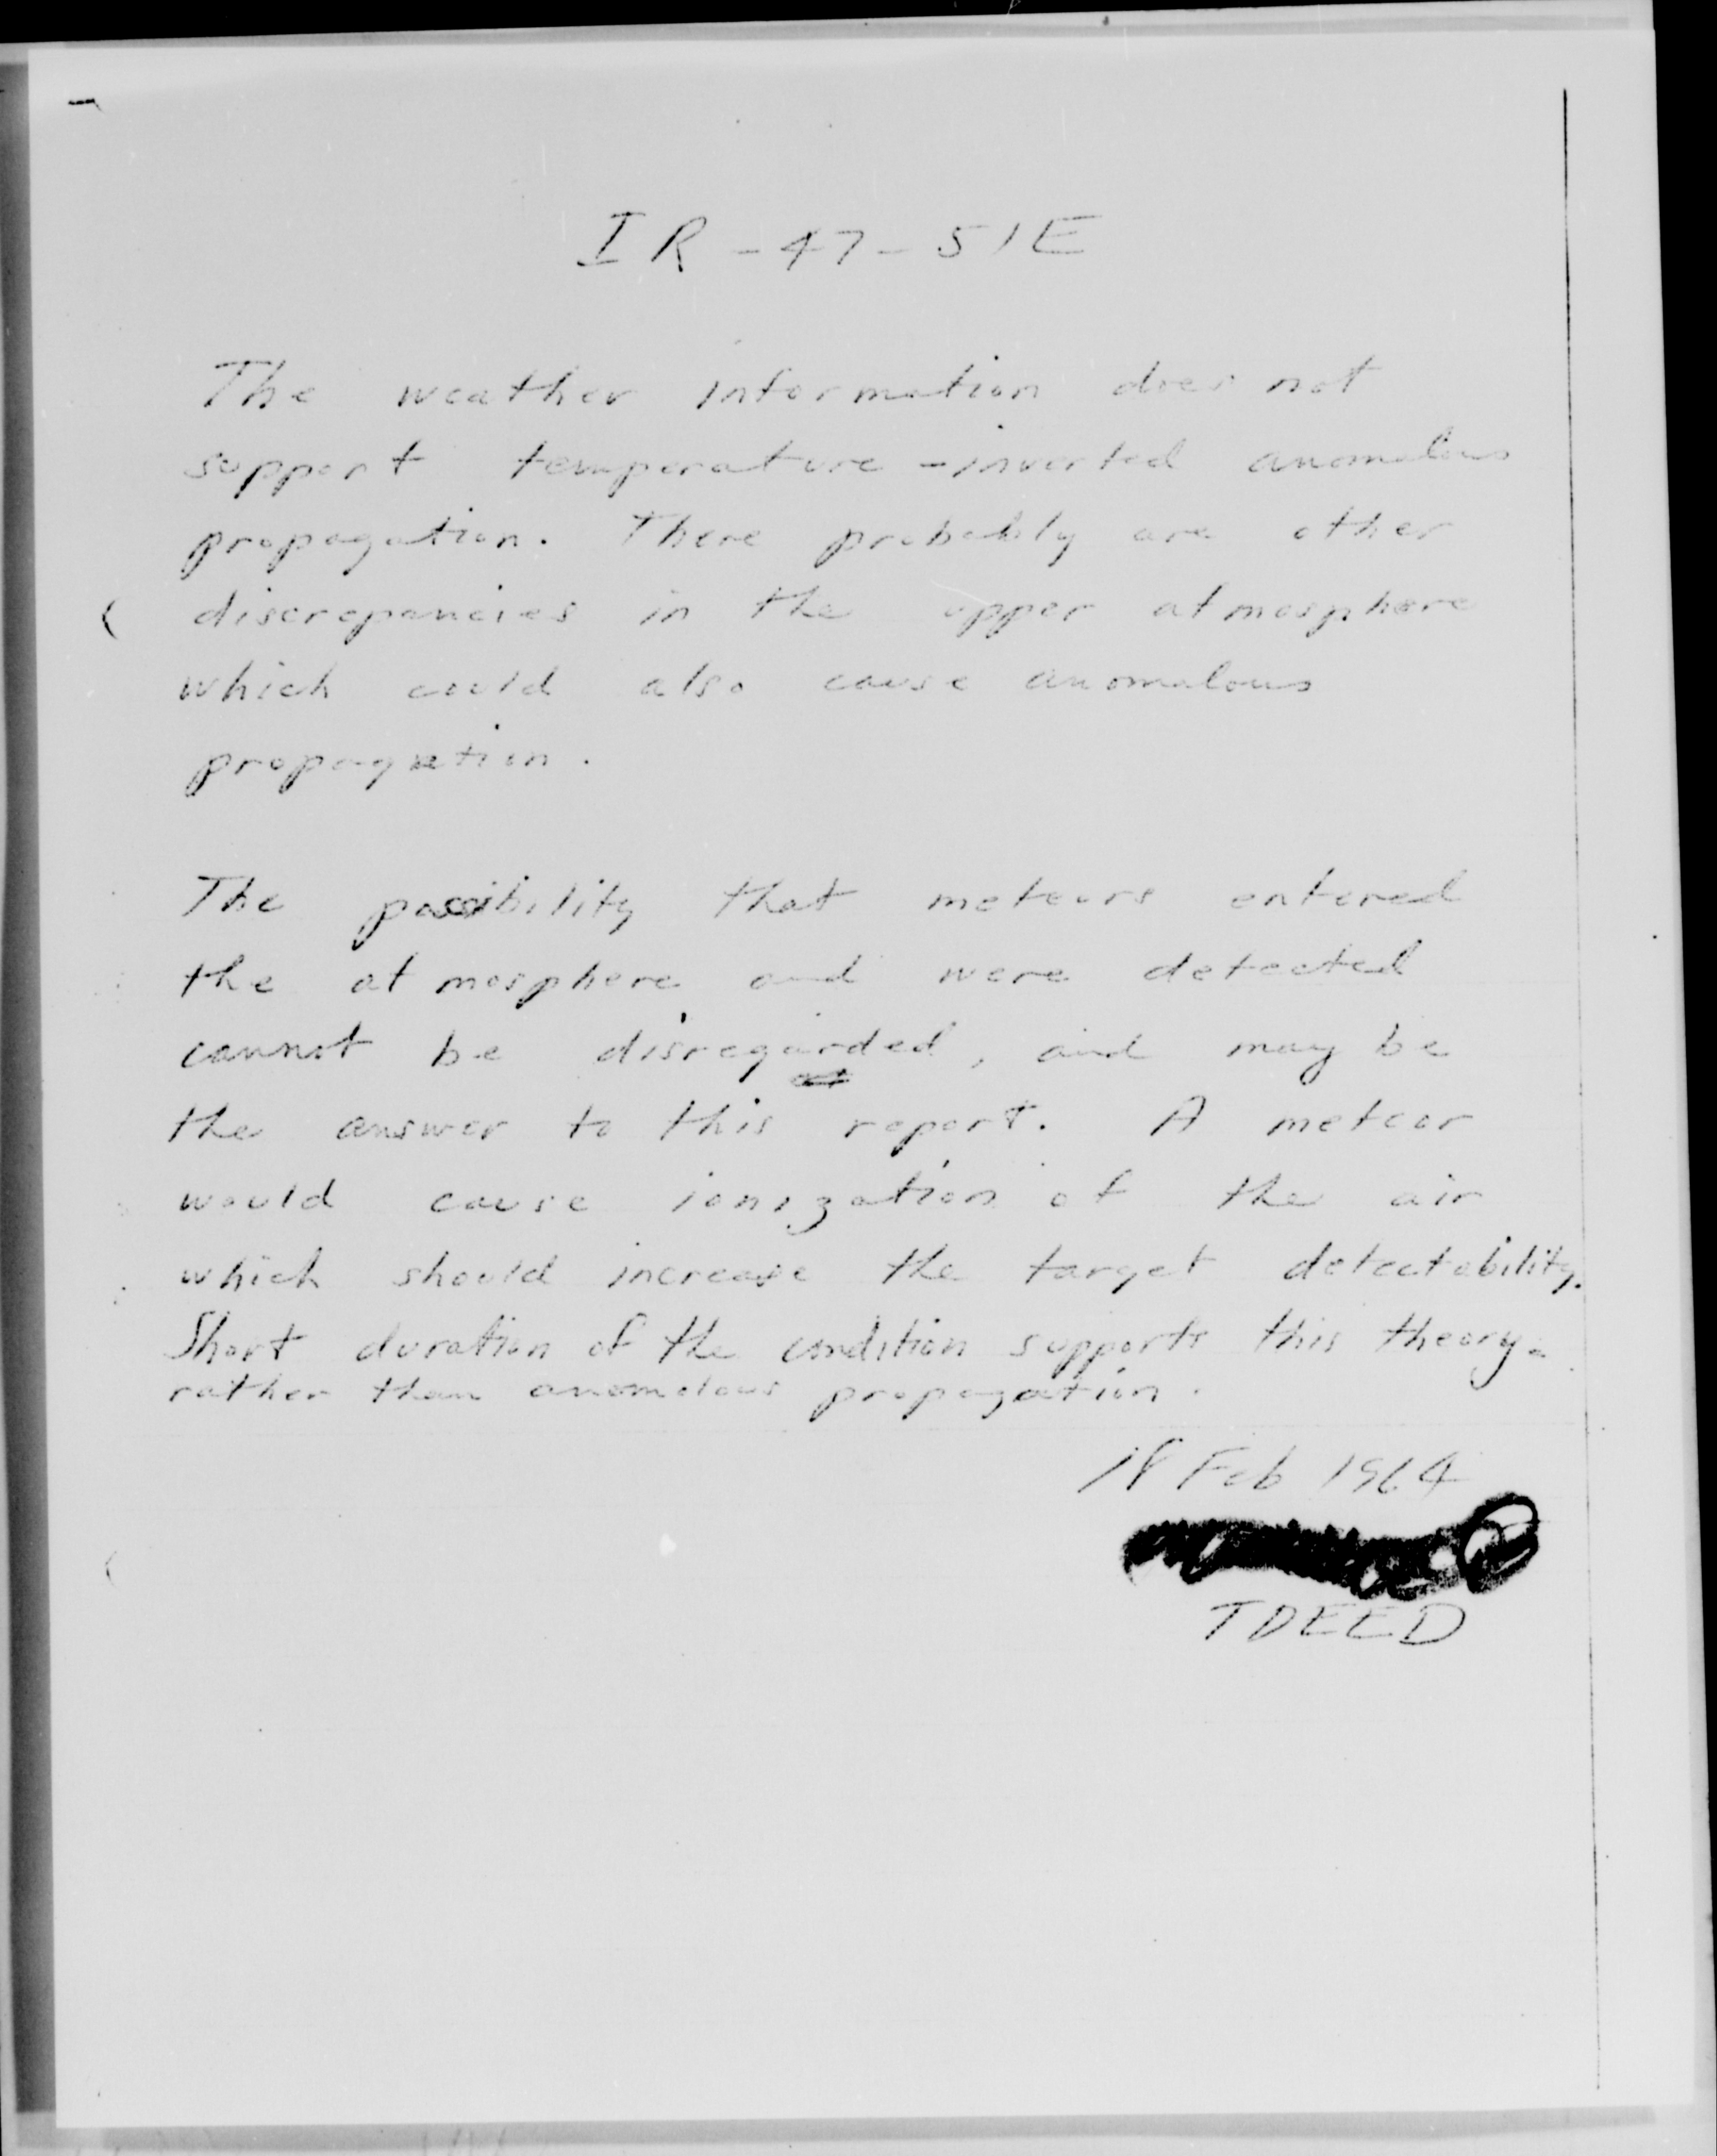 IR-47-51E
The weather information does not
support temperature-inverted anomalous
propagation. There probably are other
discrepancies in the upper atmosphere
which could also cause anomalous
propagation.
The possibility that meteors entered
the atmosphere and were detected
cannot be disregarded, and may be
the answer to this report. A meteor
would cause ionization of the air
which should increase the target detectability.
Short duration of the condition supports this theory
rather than anomolous propagation.
18 Feb 1964
TDEED